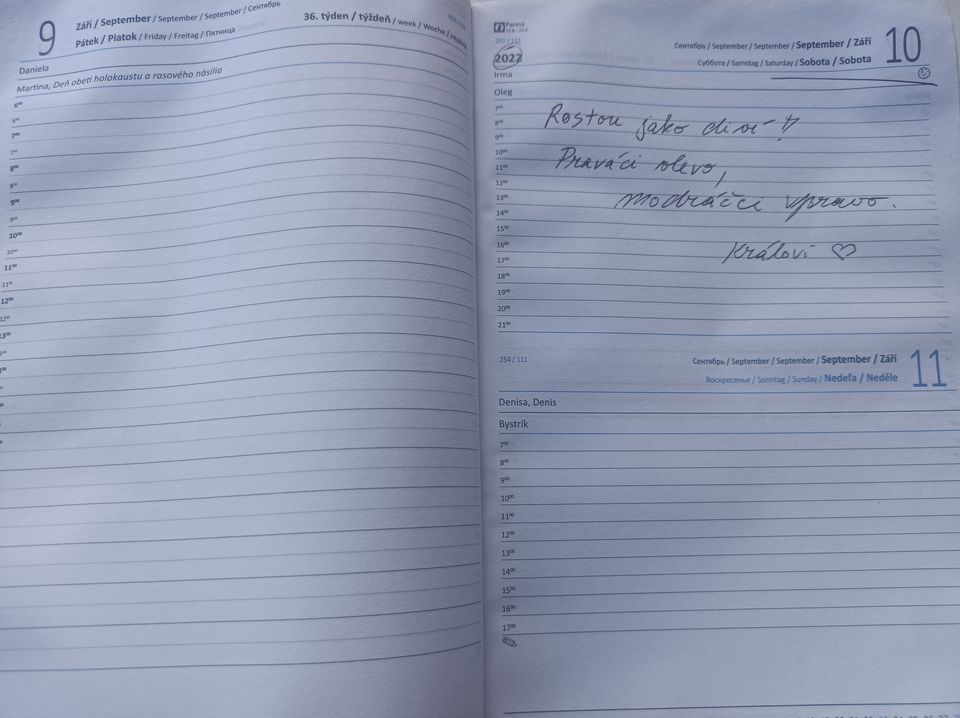 9
Září / September / September / September / Сентябрь
Pátek / Piatok / Friday / Freitag / Пятница
36. týden / týždeň / week / Woche / Неделя
Daniela
Martina, Deň obetí holokaustu a rasového násilia
6⁰⁰
6³⁰
7⁰⁰
7³⁰
8⁰⁰
8³⁰
9⁰⁰
9³⁰
10⁰⁰
10³⁰
11⁰⁰
11³⁰
12⁰⁰
12³⁰
13⁰⁰
Panna
253 / 112
2022
Сентябрь / September / September / September / Září
Суббота / Samstag / Saturday / Sobota / Sobota
10
Irma
Oleg
7⁰⁰
8⁰⁰
9⁰⁰
10⁰⁰
11⁰⁰
12⁰⁰
13⁰⁰
14⁰⁰
15⁰⁰
16⁰⁰
17⁰⁰
18⁰⁰
19⁰⁰
20⁰⁰
21⁰⁰
Rostou jako diví!
Praváci vlevo,
modráčci vpravo.
Královi ♡
254 / 111
Сентябрь / September / September / September / Září
Воскресенье / Sonntag / Sunday / Nedeľa / Neděle
11
Denisa, Denis
Bystrík
7⁰⁰
8⁰⁰
9⁰⁰
10⁰⁰
11⁰⁰
12⁰⁰
13⁰⁰
14⁰⁰
15⁰⁰
16⁰⁰
17⁰⁰